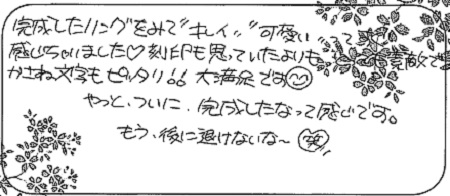 完成したリングをみて"キレイ"、"可愛い"って
感じちゃいました♡刻印も思っていたよりもっと素敵で
かさね文字もピッタリ!!大満足です
やっと、ついに、完成したなって感じです。
もう、後に退けないな〜(笑)